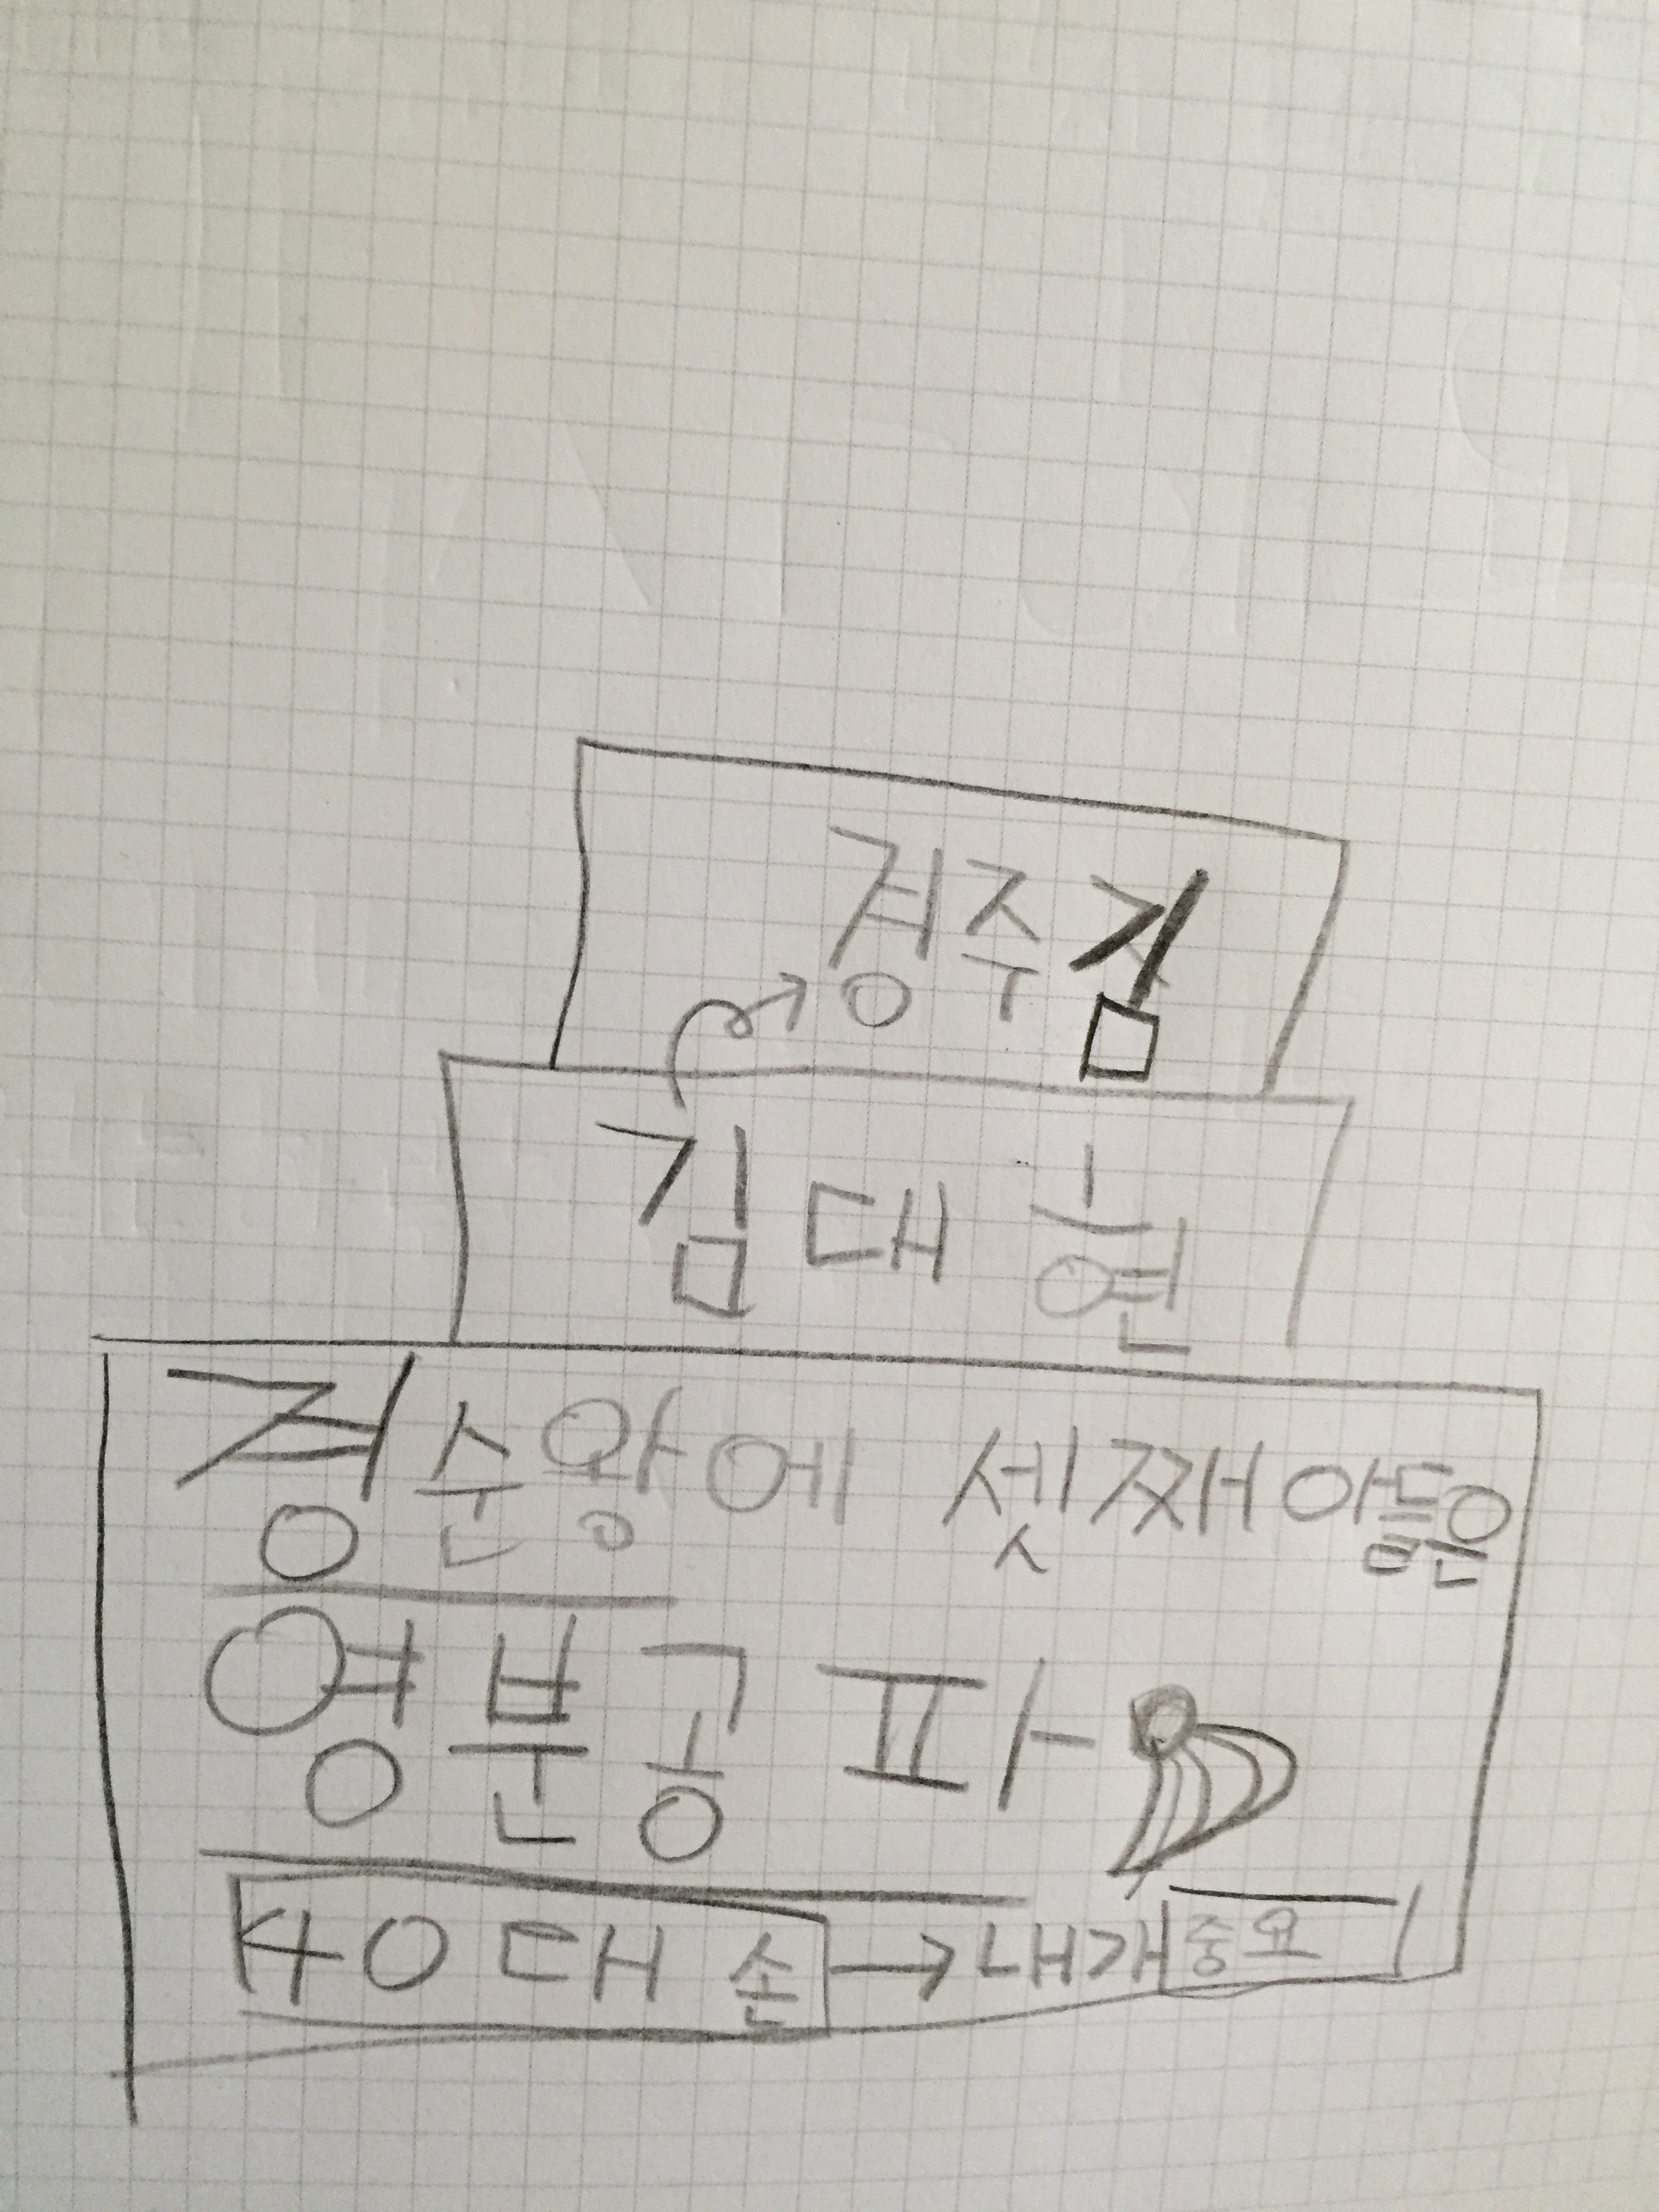 경주김
김대현
경순왕에 셋째아들은
영분공파
40대손→내가 중요